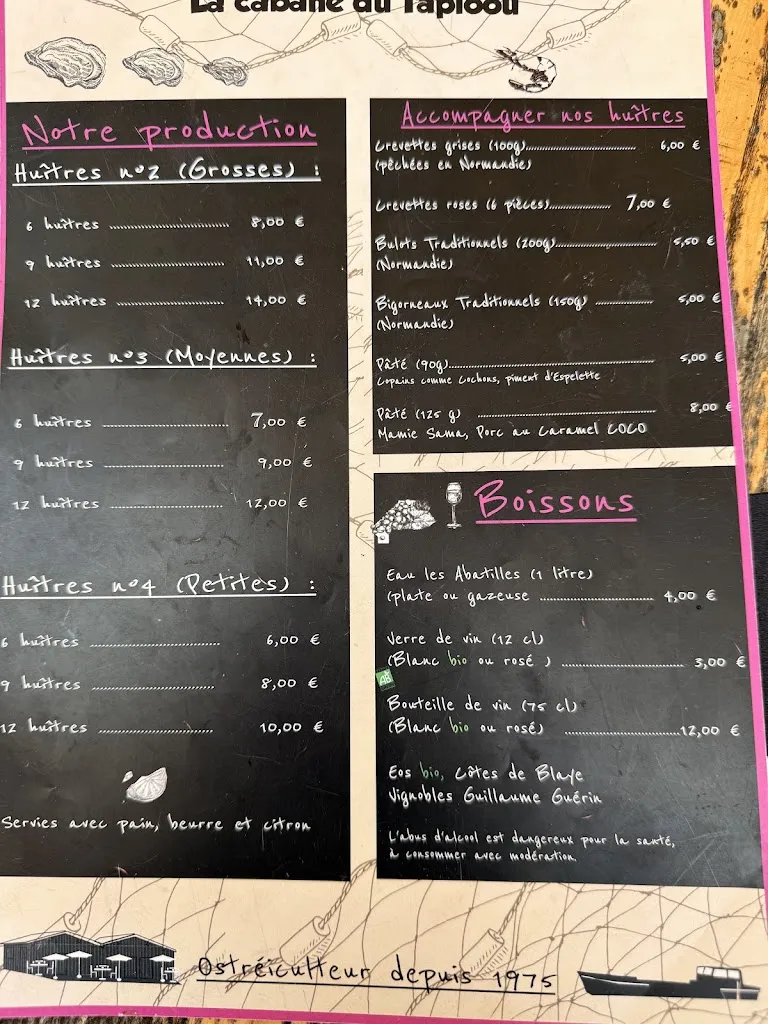 La cabane du Tapioou
Notre production
Huîtres n°2 (Grosses) :
6 huîtres ........................ 8,00 €
9 huîtres ........................ 11,00 €
12 huîtres ........................ 14,00 €
Huîtres n°3 (Moyennes) :
6 huîtres ........................ 7,00 €
9 huîtres ........................ 9,00 €
12 huîtres ........................ 12,00 €
Huîtres n°4 (Petites) :
6 huîtres ........................ 6,00 €
9 huîtres ........................ 8,00 €
12 huîtres ........................ 10,00 €
Servies avec pain, beurre et citron
Accompagner nos huîtres
Crevettes grises (100g)........................ 6,00 €
(pêchées en Normandie)
Crevettes roses (6 pièces)............... 7,00 €
Bulots Traditionnels (200g)........................ 5,50 €
(Normandie)
Bigorneaux Traditionnels (150g) ............... 5,00 €
(Normandie)
Pâté (90g)........................ 5,00 €
Copains comme Cochons, piment d'Espelette
Pâté (125 g) ........................ 8,00 €
Mamie Sama, Porc au Caramel COCO
Boissons
Eau les Abatilles (1 litre)
(plate ou gazeuse ........................ 4,00 €
Verre de vin (12 cl)
(Blanc bio ou rosé ) ........................ 3,00 €
AB
Bouteille de vin (75 cl)
(Blanc bio ou rosé) ........................12,00 €
Eos bio, Côtes de Blaye
Vignobles Guillaume Guérin
L'abus d'alcool est dangereux pour la santé,
à consommer avec modération.
Ostréiculteur depuis 1975